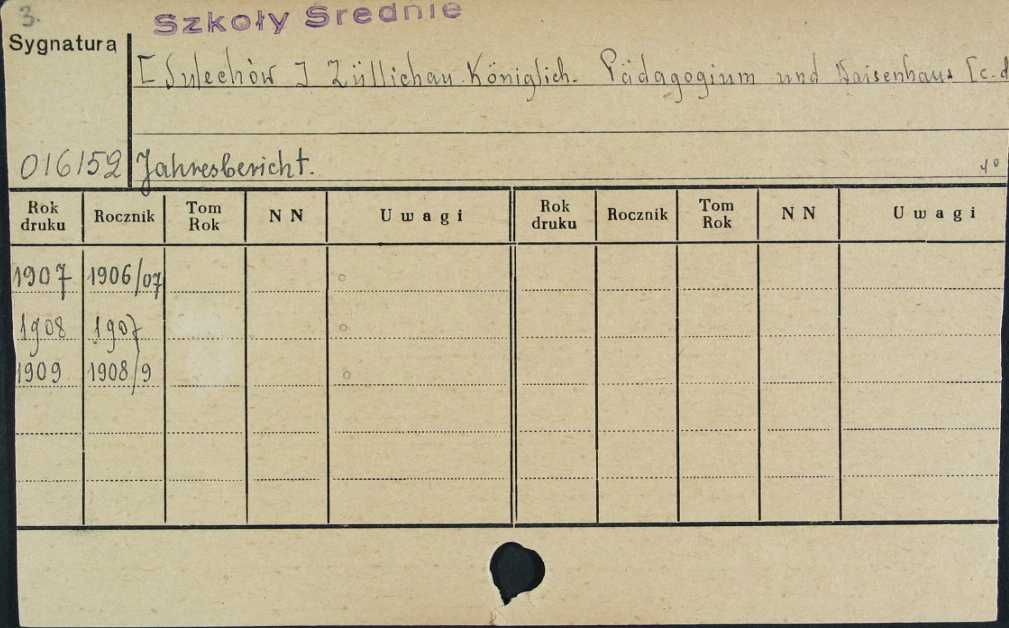 3.
Szkoły Średnie
Sygnatura
[Sulechów] Züllichau. Königlich. Pädagogium und Waisenhaus [c.d
016152 Jahresbericht. 4°
Rok druku Rocznik Tom Rok N N Uwagi Rok druku Rocznik Tom Rok N N Uwagi
1907 1906/07
1908 1907
1909 1908/9